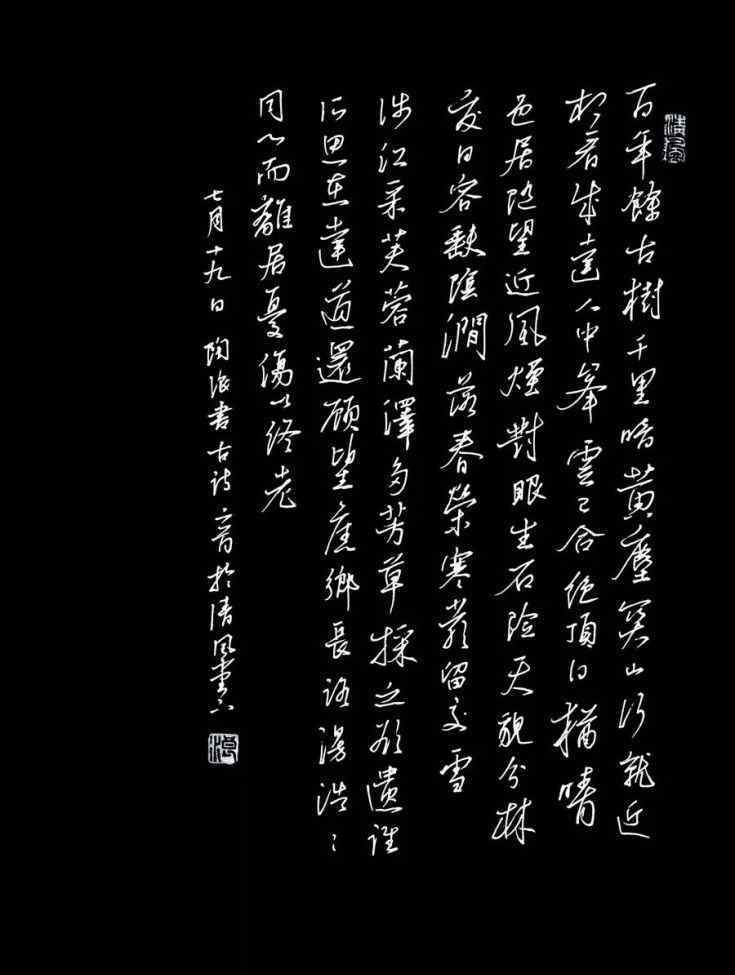 清風
百年餘古樹千里暗黃塵冥山行就近
相看成遠人中峯雲已合絕頂日猶晴
邑居隨望近風煙對眼生石险天貌分林
交日容缺陰澗落春榮寒巖留夏雪
涉江采芙蓉蘭澤多芳草採之欲遺誰
所思在遠道還顧望舊鄉長路漫浩〻
同心而離居憂傷以終老
七月十九日陶書古詩一首於清風堂下